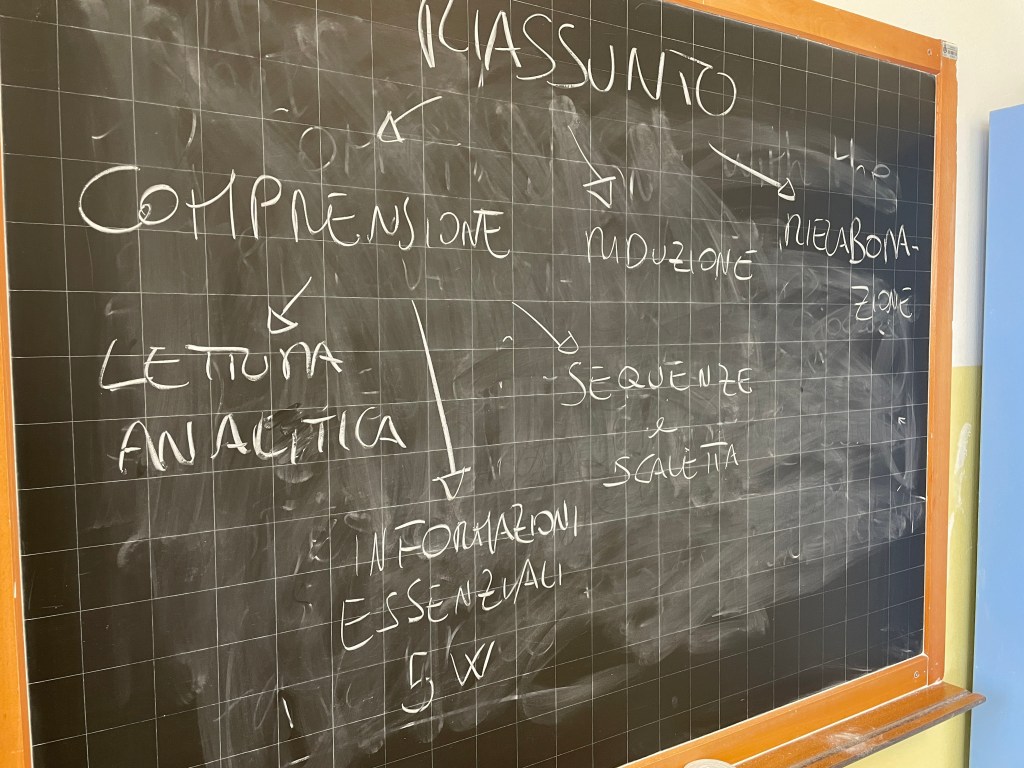 RIASSUNTO
COMPRENSIONE
RIDUZIONE
RIELABORA-
ZIONE
LETTURA
ANALITICA
SEQUENZE
e
SCALETTA
INFORMAZIONI
ESSENZIALI
5 W